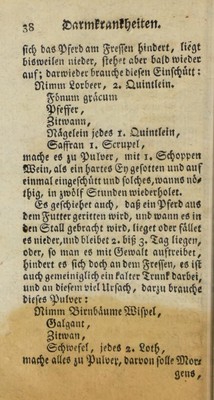 38 Darmkrankheiten.
sich das Pferd am Fressen hindert, liegt
bisweilen nieder, stehet aber bald wieder
auf; darwieder brauche diesen Einschütt:
Nimm Lorbeer, 2. Quintlein.
Fönum gräcum
Pfeffer,
Zitwann,
Nägelein jedes 1. Quintlein,
Saffran 1. Scrupel,
mache es zu Pulver, mit 1. Schoppen
Wein, als ein hartes Ey gesotten und auf
einmal eingeschütt und solches, wanns nö-
thig, in zwölf Stunden wiederholet.
Es geschiehet auch, daß ein Pferd aus
dem Futter geritten wird, und wann es in
den Stall gebracht wird, lieget oder fället
es nieder, und bleibet 2. biß 3. Tag liegen,
oder, so man es mit Gewalt auftreibet,
hindert es sich doch an dem Fressen, es ist
auch gemeiniglich ein kalter Trunk darbei,
und an diesem viel Ursach, darzu brauche
dieses Pulver:
Nimm Birnbäume Wispel,
Galgant,
Zitwan,
Schwefel, jedes 2. Loth,
mache alles zu Pulver, darvon solle Mor-
gens,